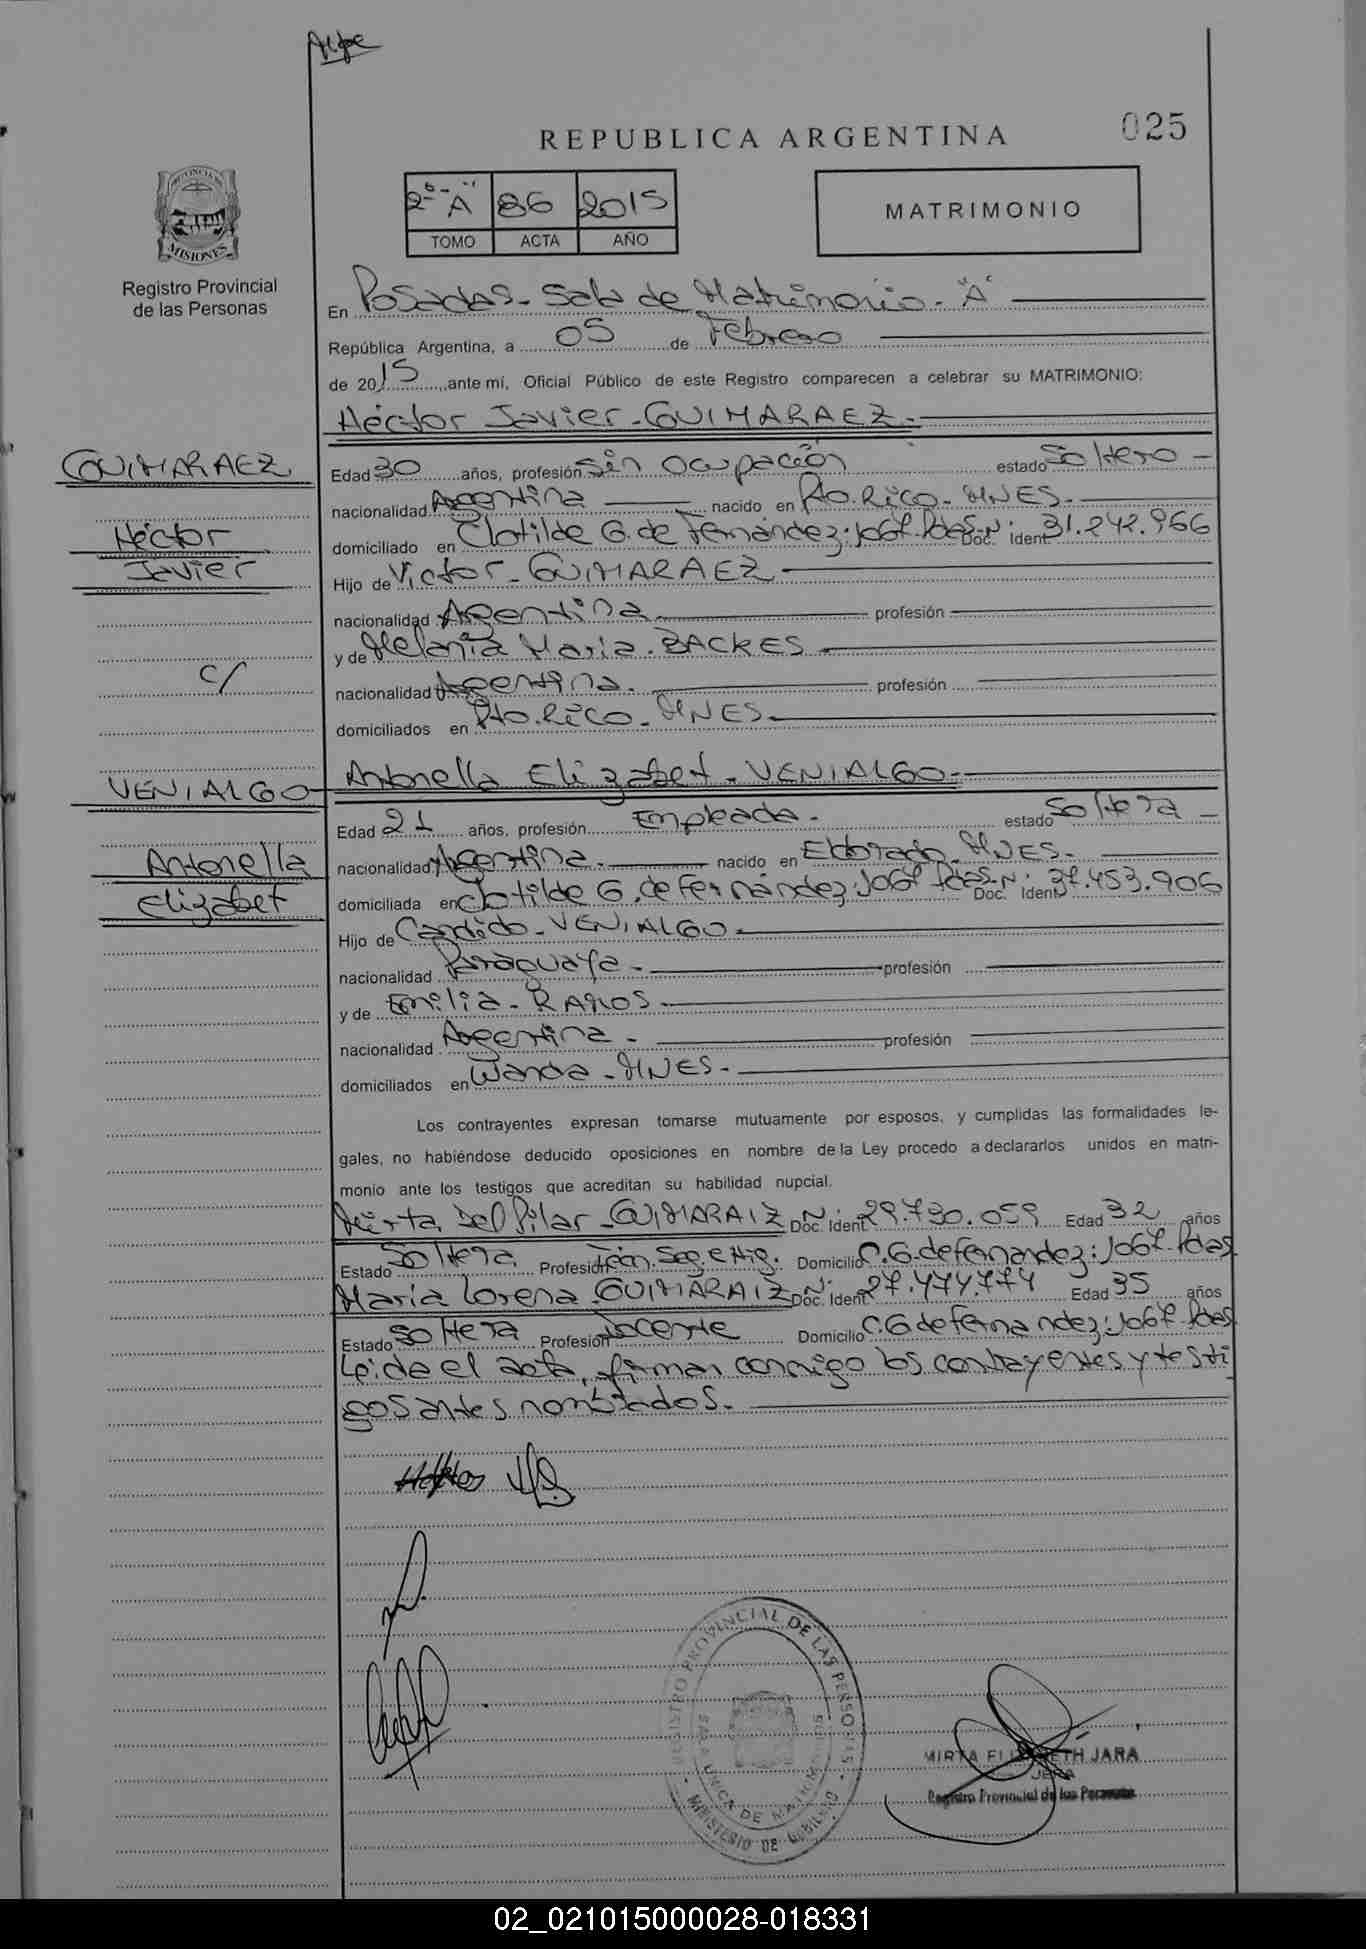 REPUBLICA ARGENTINA
025
PROVINCIA DE
MISIONES
Registro Provincial
de las Personas
2º "A" 86 2015
TOMO ACTA AÑO
MATRIMONIO
En Posadas - Sala de Matrimonio - "A"
República Argentina, a 05 de Febrero
de 2015, ante mí, Oficial Público de este Registro comparecen a celebrar su MATRIMONIO:
Héctor Javier - GUIMARAEZ -
GUIMARAEZ
Héctor
Javier
c/
VENIALGO
Antonella
Elizabet
Edad 30 años, profesión Sin Ocupación estado Soltero -
nacionalidad Argentina nacido en Pto. Rico - MNES -
domiciliado en Clotilde G. de Fernández: 1067 - Pdas Doc. Ident Nº: 31.242.966
Hijo de Victor - GUIMARAEZ
nacionalidad Argentina profesión
y de Melania Maria - BACKES -
nacionalidad Argentina. profesión
domiciliados en Pto. Rico - MNES -
Antonella Elizabet - VENIALGO -
Edad 21 años, profesión Empleada - estado Soltera -
nacionalidad Argentina - nacido en Eldorado - MNES -
domiciliada en Clotilde G. de Fernández: 1067 Pdas Doc. Ident Nº: 37.453.906
Hijo de Candido - VENIALGO -
nacionalidad Paraguaya - profesión
y de Emilia - RAMOS -
nacionalidad Argentina - profesión
domiciliados en Wanda - MNES -
Los contrayentes expresan tomarse mutuamente por esposos, y cumplidas las formalidades le-
gales, no habiéndose deducido oposiciones en nombre de la Ley procedo a declararlos unidos en matri-
monio ante los testigos que acreditan su habilidad nupcial.
Mirta Del Pilar - GUIMARAIZ Doc. Ident Nº: 29.730.059 Edad 32 años
Estado Soltera Profesión Técn. Seg e Hig. Domicilio C. G. de Fernandez: 1067 - Pdas
Maria Lorena - GUIMARAIZ Doc. Ident Nº: 27.474.774 Edad 35 años
Estado Soltera Profesión Docente Domicilio C. G de Fernandez: 1067 - Pdas
Leida el acta, firman conmigo los contrayentes y testi
gos antes nombrados. -
REGISTRO PROVINCIAL DE LAS PERSONAS
MINISTERIO DE GOBIERNO
MIRTA ELIZABETH JARA
JEFA
Registro Provincial de las Personas
02_021015000028-018331